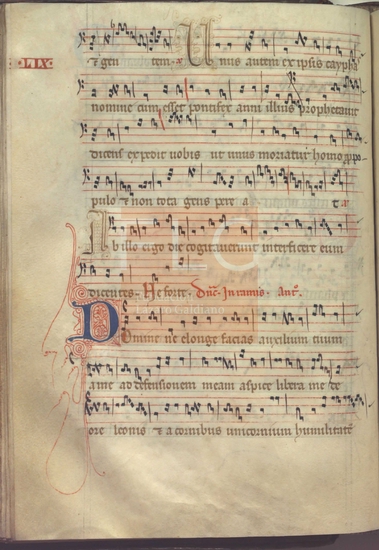 & gen tem Unus autem ex ipsis cayph
LIX
nomine cum esset pontifex anni illius prophetavit
dicens expedit vobis ut unus moriatur homo pro
pulo & non tota gens pere a t
In illo ergo die cogitaverunt interficere eum
dicentes. Ne forte
Domine ne longe facias auxilium tuum
a me ad defensionem meam aspice libera me de
ore leonis & a cornibus unicornium humilitatē